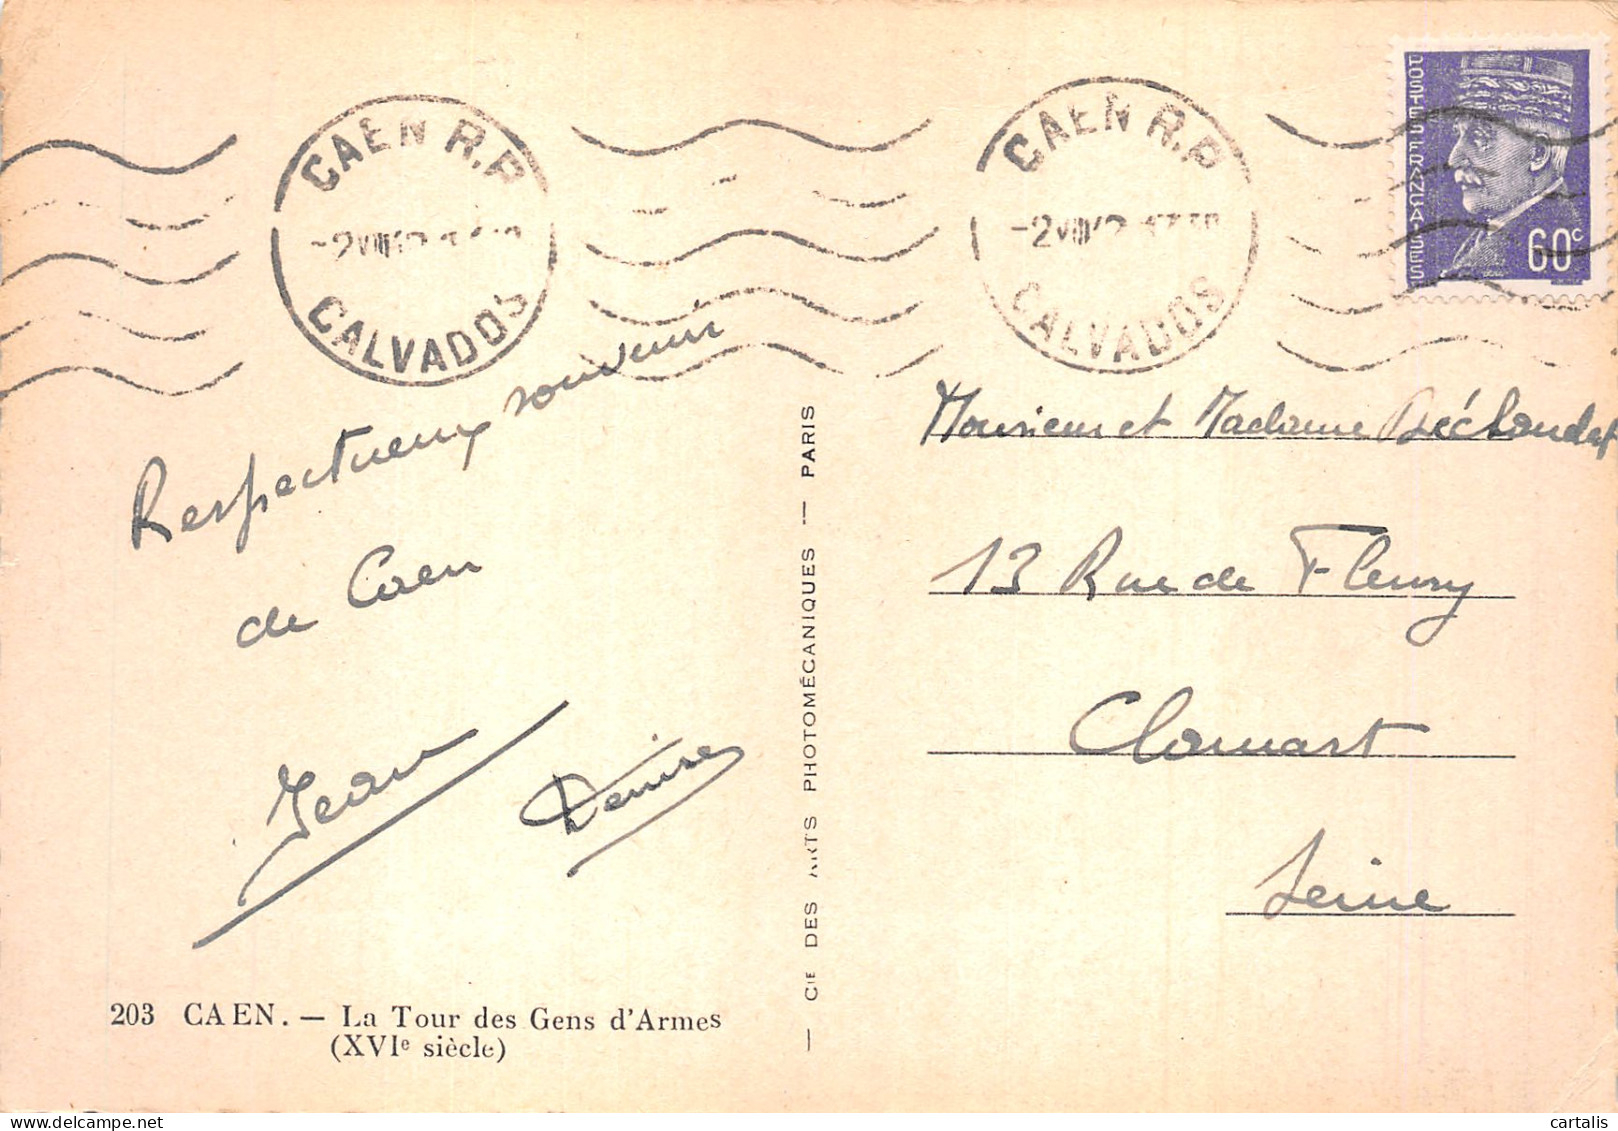 CAEN R.P.
-2 VIII 42
CALVADOS
CAEN R.P.
-2 VIII 42 17 30
CALVADOS
POSTES FRANÇAISES
60c
Respectueux souvenir
de Caen
Jean
Denise
Monsieur et Madame
13 Rue de Fleury
Clamart
Seine
— CIE DES ARTS PHOTOMÉCANIQUES — PARIS
203 CAEN. — La Tour des Gens d'Armes
(XVIe siècle)
cartalis
www.delcampe.net